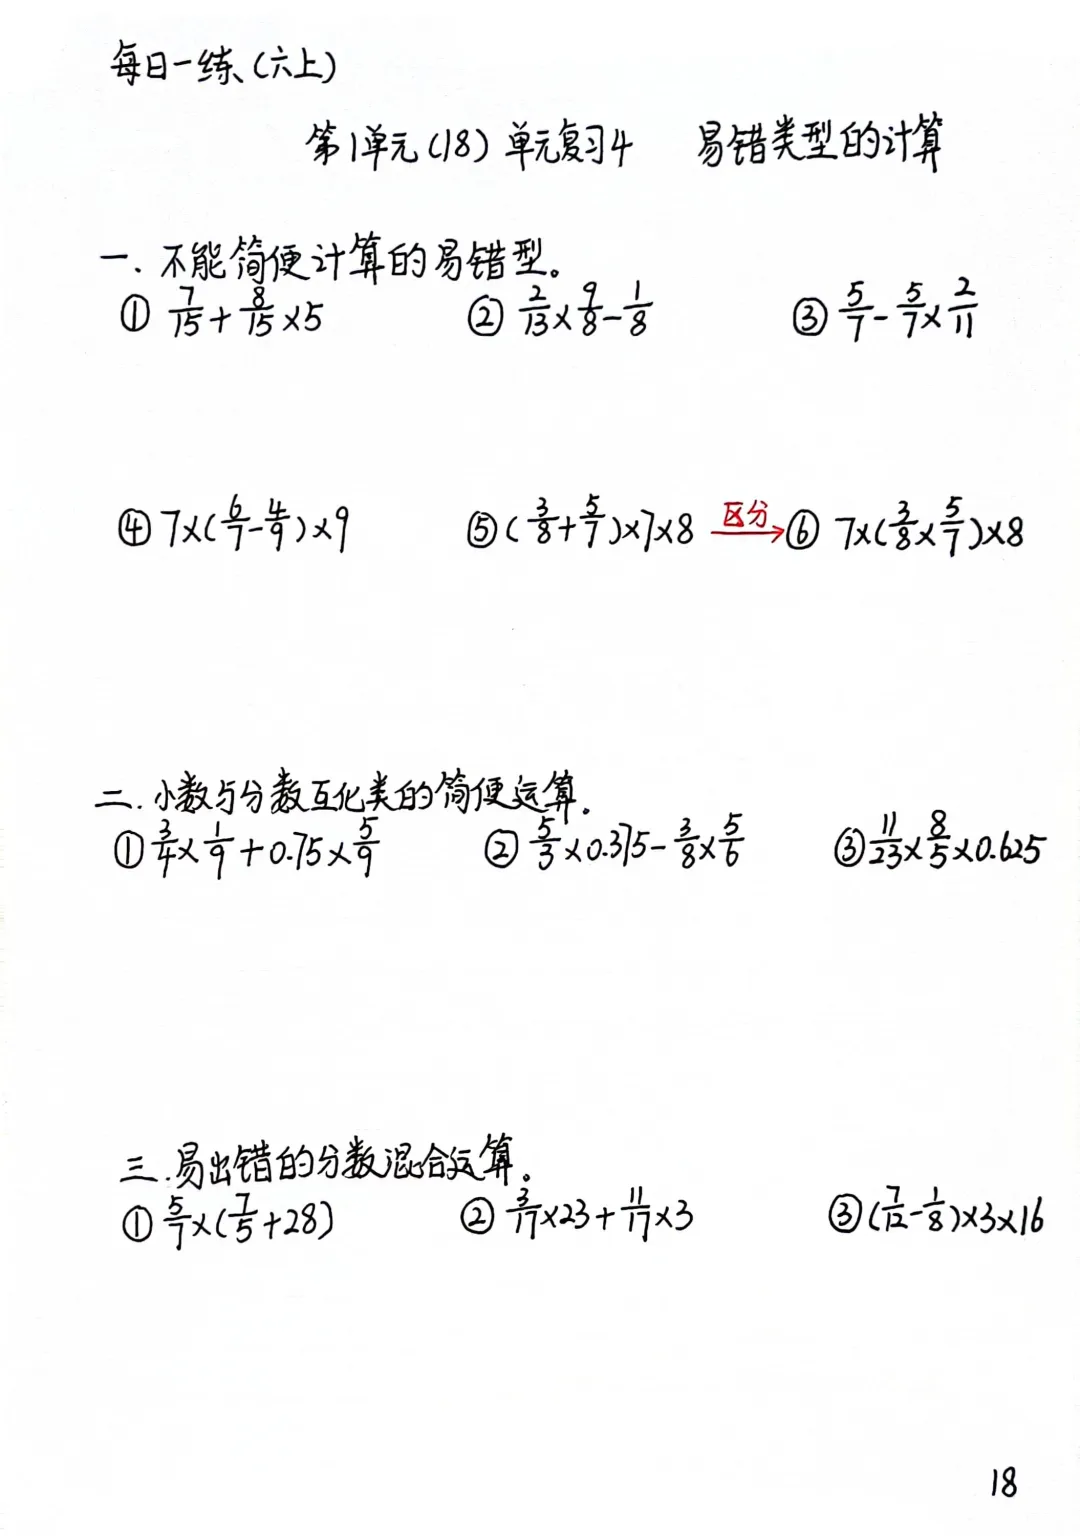 每日一练(六上)
第1单元(18)单元复习4 易错类型的计算
一、不能简便计算的易错型。
① 7/15+8/15×5 ② 2/13×9/8-1/8 ③ 5/7-5/7×2/11
④ 7×(6/7-4/9)×9 ⑤ (3/8+5/7)×7×8 区分 ⑥ 7×(3/8×5/7)×8
二.小数与分数互化类的简便运算.
① 3/4×1/9+0.75×5/9 ② 5/3×0.375-3/8×5/6 ③ 11/23×8/5×0.625
三.易出错的分数混合运算。
① 5/7×(7/5+28) ② 3/17×23+11/17×3 ③ (7/12-1/8)×3×16
18